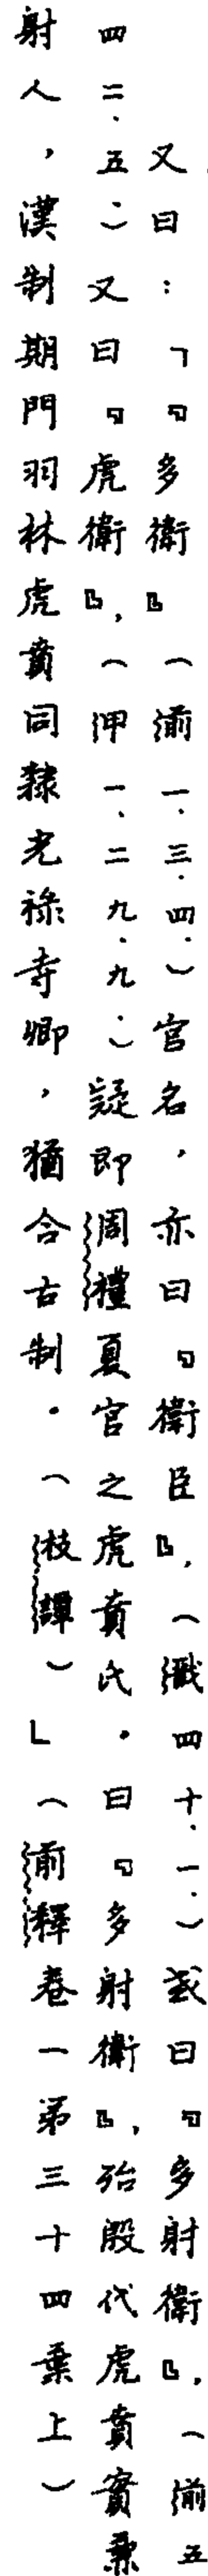 又曰：「『多衛』（前一.三.四.）官名，亦曰『衛臣』，（戩四十.一.）或曰『多射衛』，（前五
四二.五.）又曰『虎衛』，（甲一.二九.九.）疑即周禮夏官之虎賁氏。曰『多射衛』，殆殷代虎賁實兼
射人，漢制期門羽林虎賁同隸光祿寺卿，猶合古制。（枝譚）」（前釋卷一第三十四葉上）